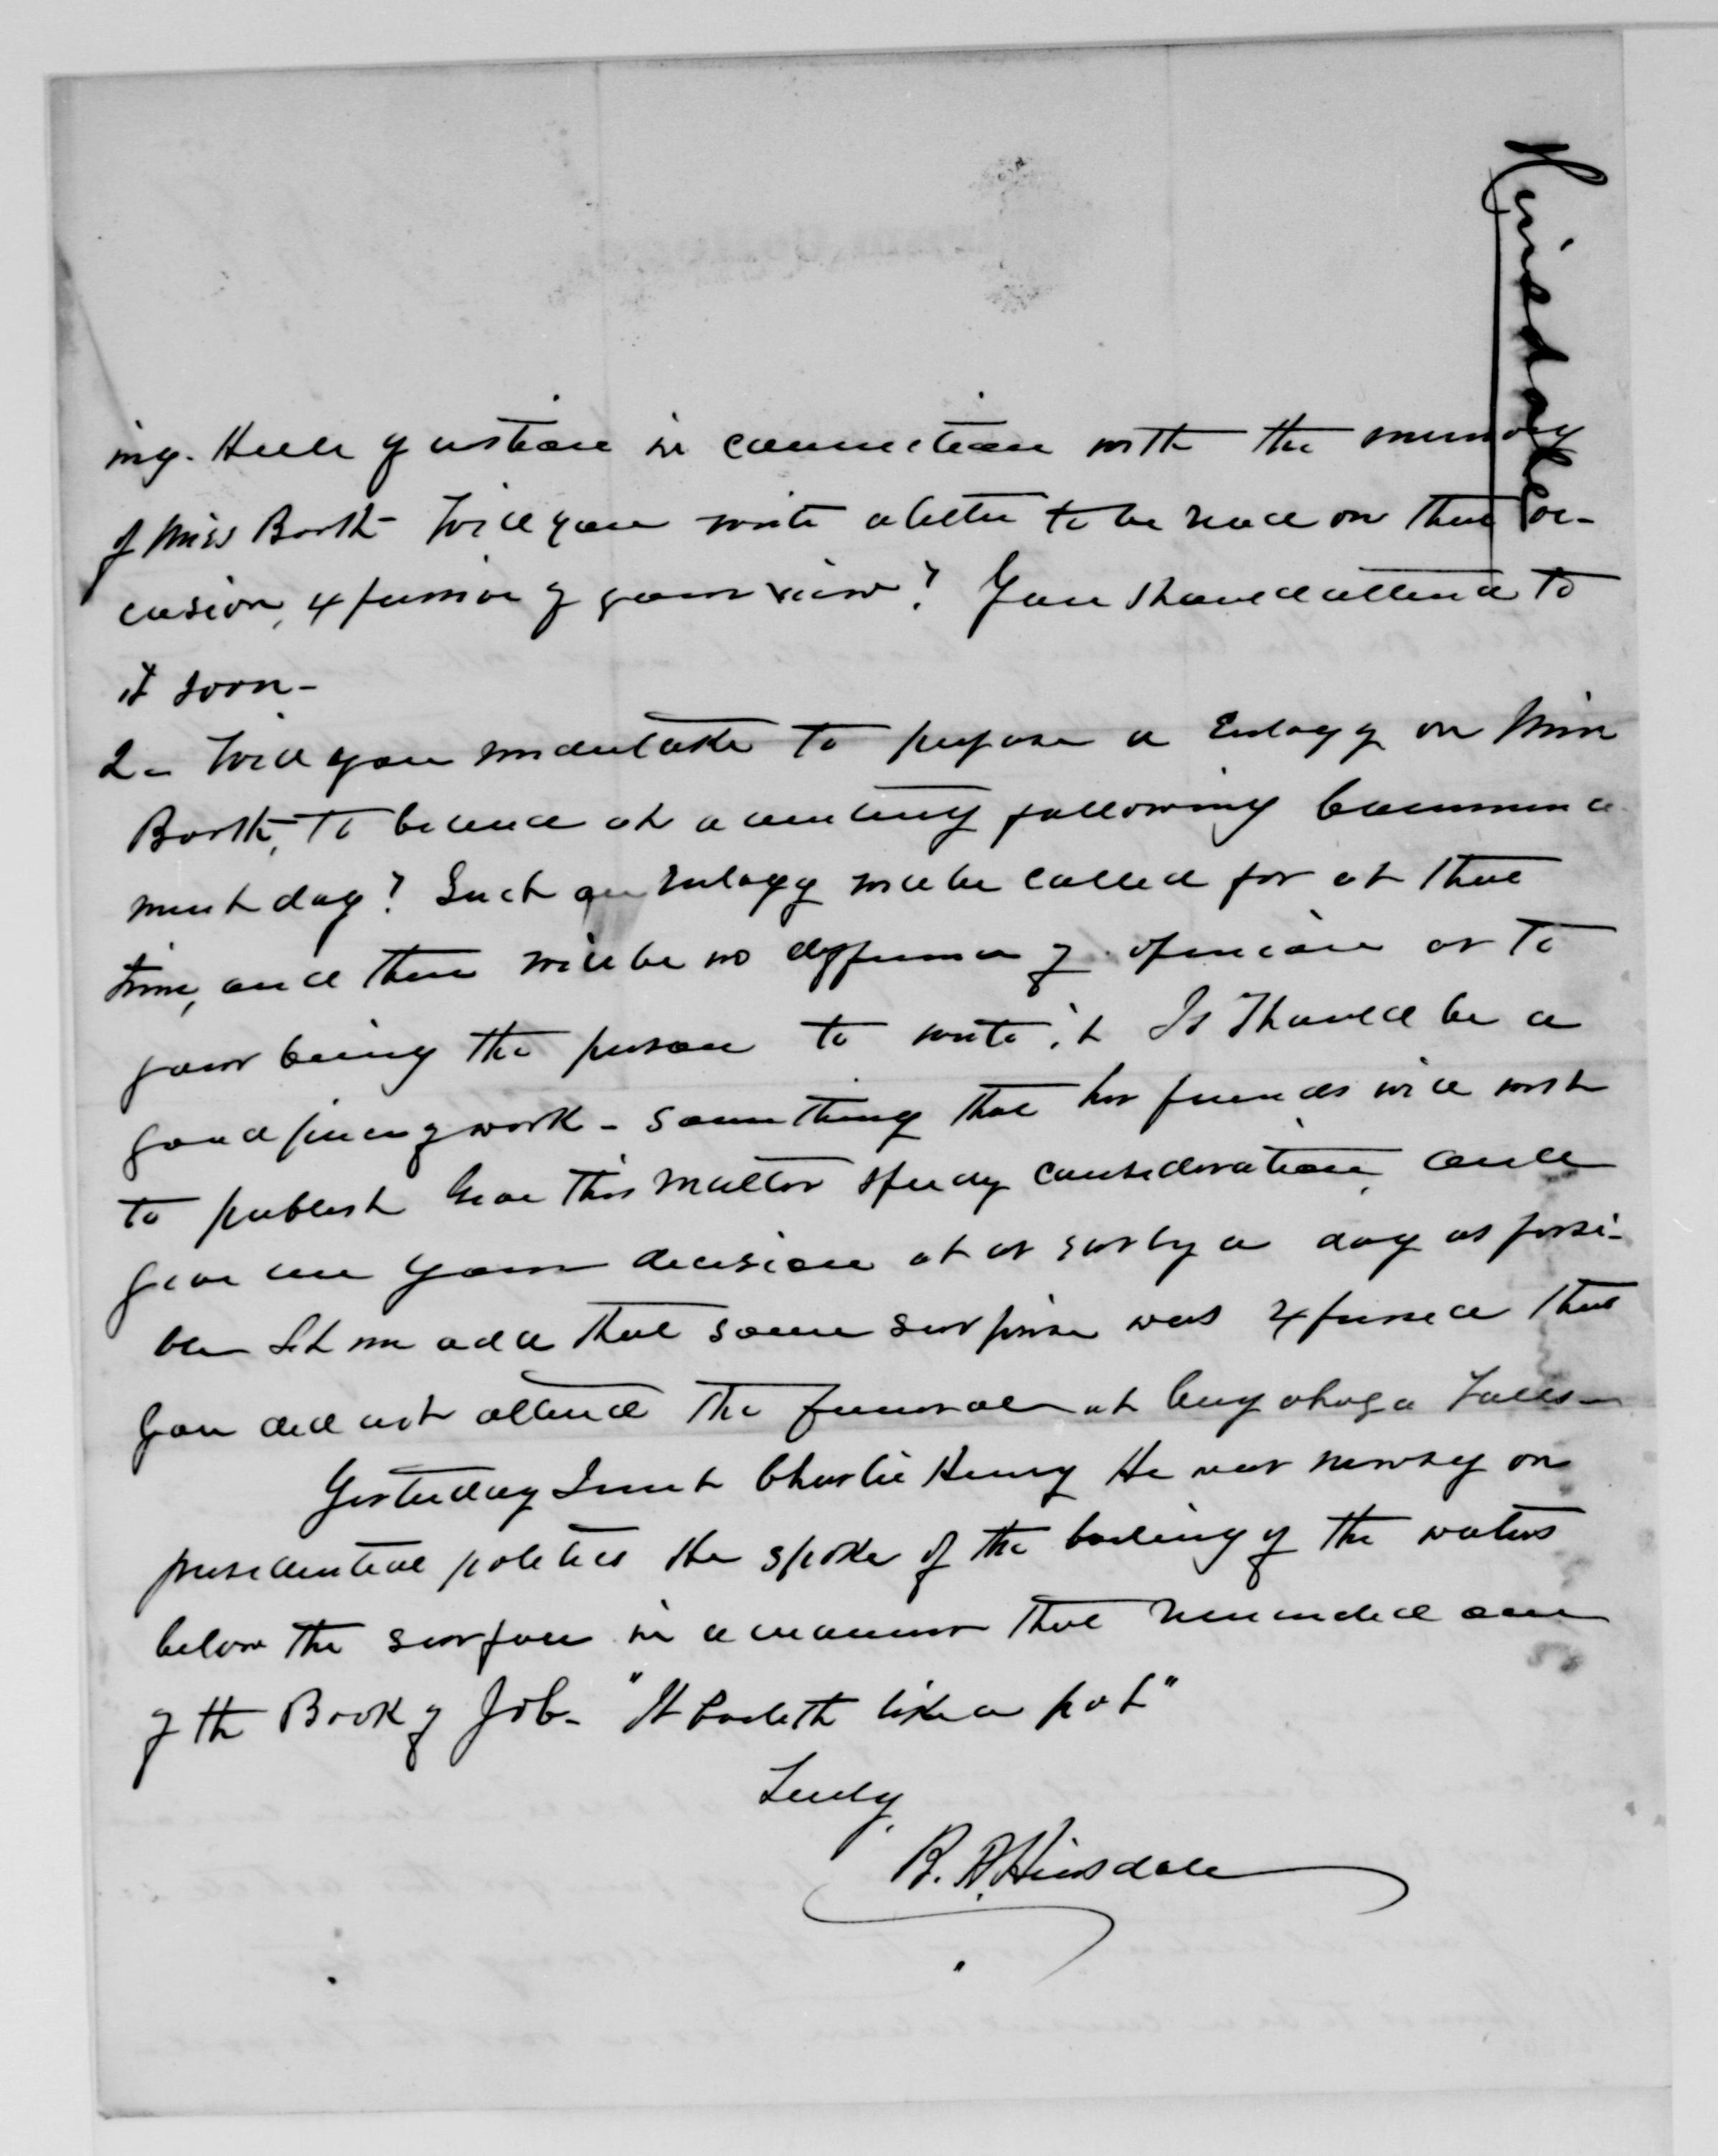 Hinsdale
ing. Hall question in connection with the memory
of Miss Booth- Will you write a letter to be read on that oc-
casion, expressive of your view? You should attend to
it soon-
2- Will you undertake to prepare a Eulogy on Miss
Booth, to be read at a meeting following Commence
ment day? Such an eulogy will be called for at that
time, and there will be no difference of opinion as to
your being the person to write it It should be a
good piece of work - something that her friends will wish
to publish Give this matter speedy consideration, and
give me your decision at as early a day as possi-
ble Let me add that some surprise was expressed that
you did not attend the funeral at Cuyahoga Falls-
Yesterday I met Charlie Henry He was newsy on
presidential politics He spoke of the boiling of the waters
below the surface in a manner that reminded one
of the Book of Job- "It boileth like a pot"
Truly,
B. A. Hinsdale